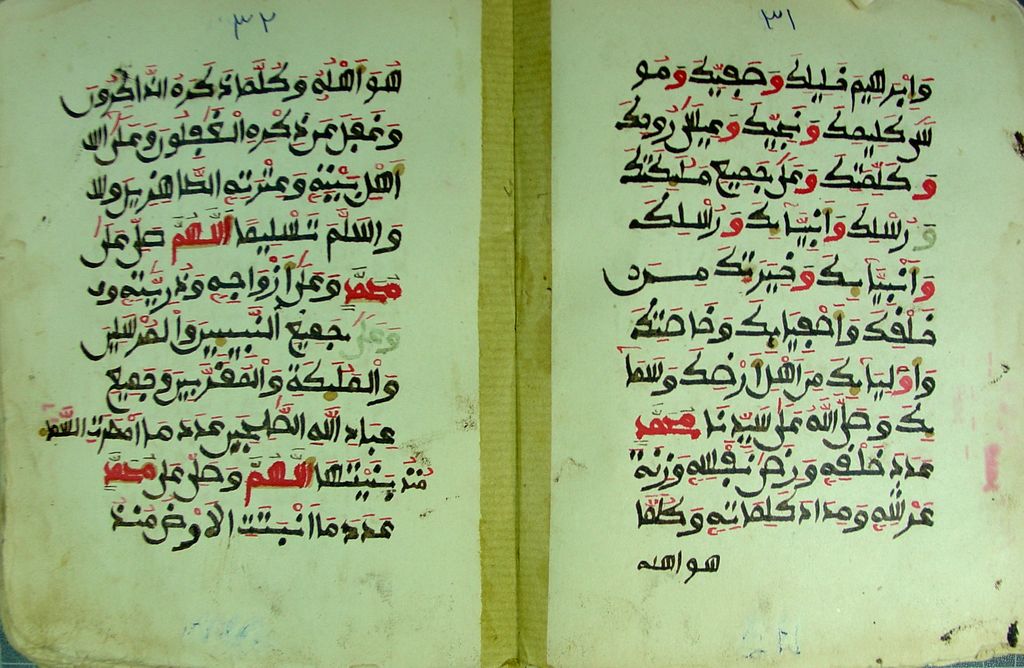 ٣١
وَابرهيم خليلك وصفيّك ومو
سى كليمك ونجيّك وعيسى روحك
وكلمتك وعلى جميع ملئكتك
ورسلك وانبيايك ورسلك
وانبيايك وخيرتك مـــن
خلقك واصفيايك وخاصتك
واوليايك من اهل ارضك وسما
يك وصلى الله على سيدنا محمد
عدد خلقه ورضى نفسه وزنة
عرشه ومداد كلماته وكلما
هو اهله
٣٢
هو اهله وكلما ذكره الذاكرون
وغفل عن ذكره الغفلون وعلى ال
اهل بيته وعترته الطاهرين وسل
والسلم تسليما اللهم صل على
محمد وعلى ازواجه وذريته و
وعلى جميع النبيين والمرسلين
والمليكة والمقربين وجميع
عباد الله الصلحين عدد ما امطرت السما
منذ بنيتها اللهم وصل على محمد
عدد ما انبتت الارض منذ